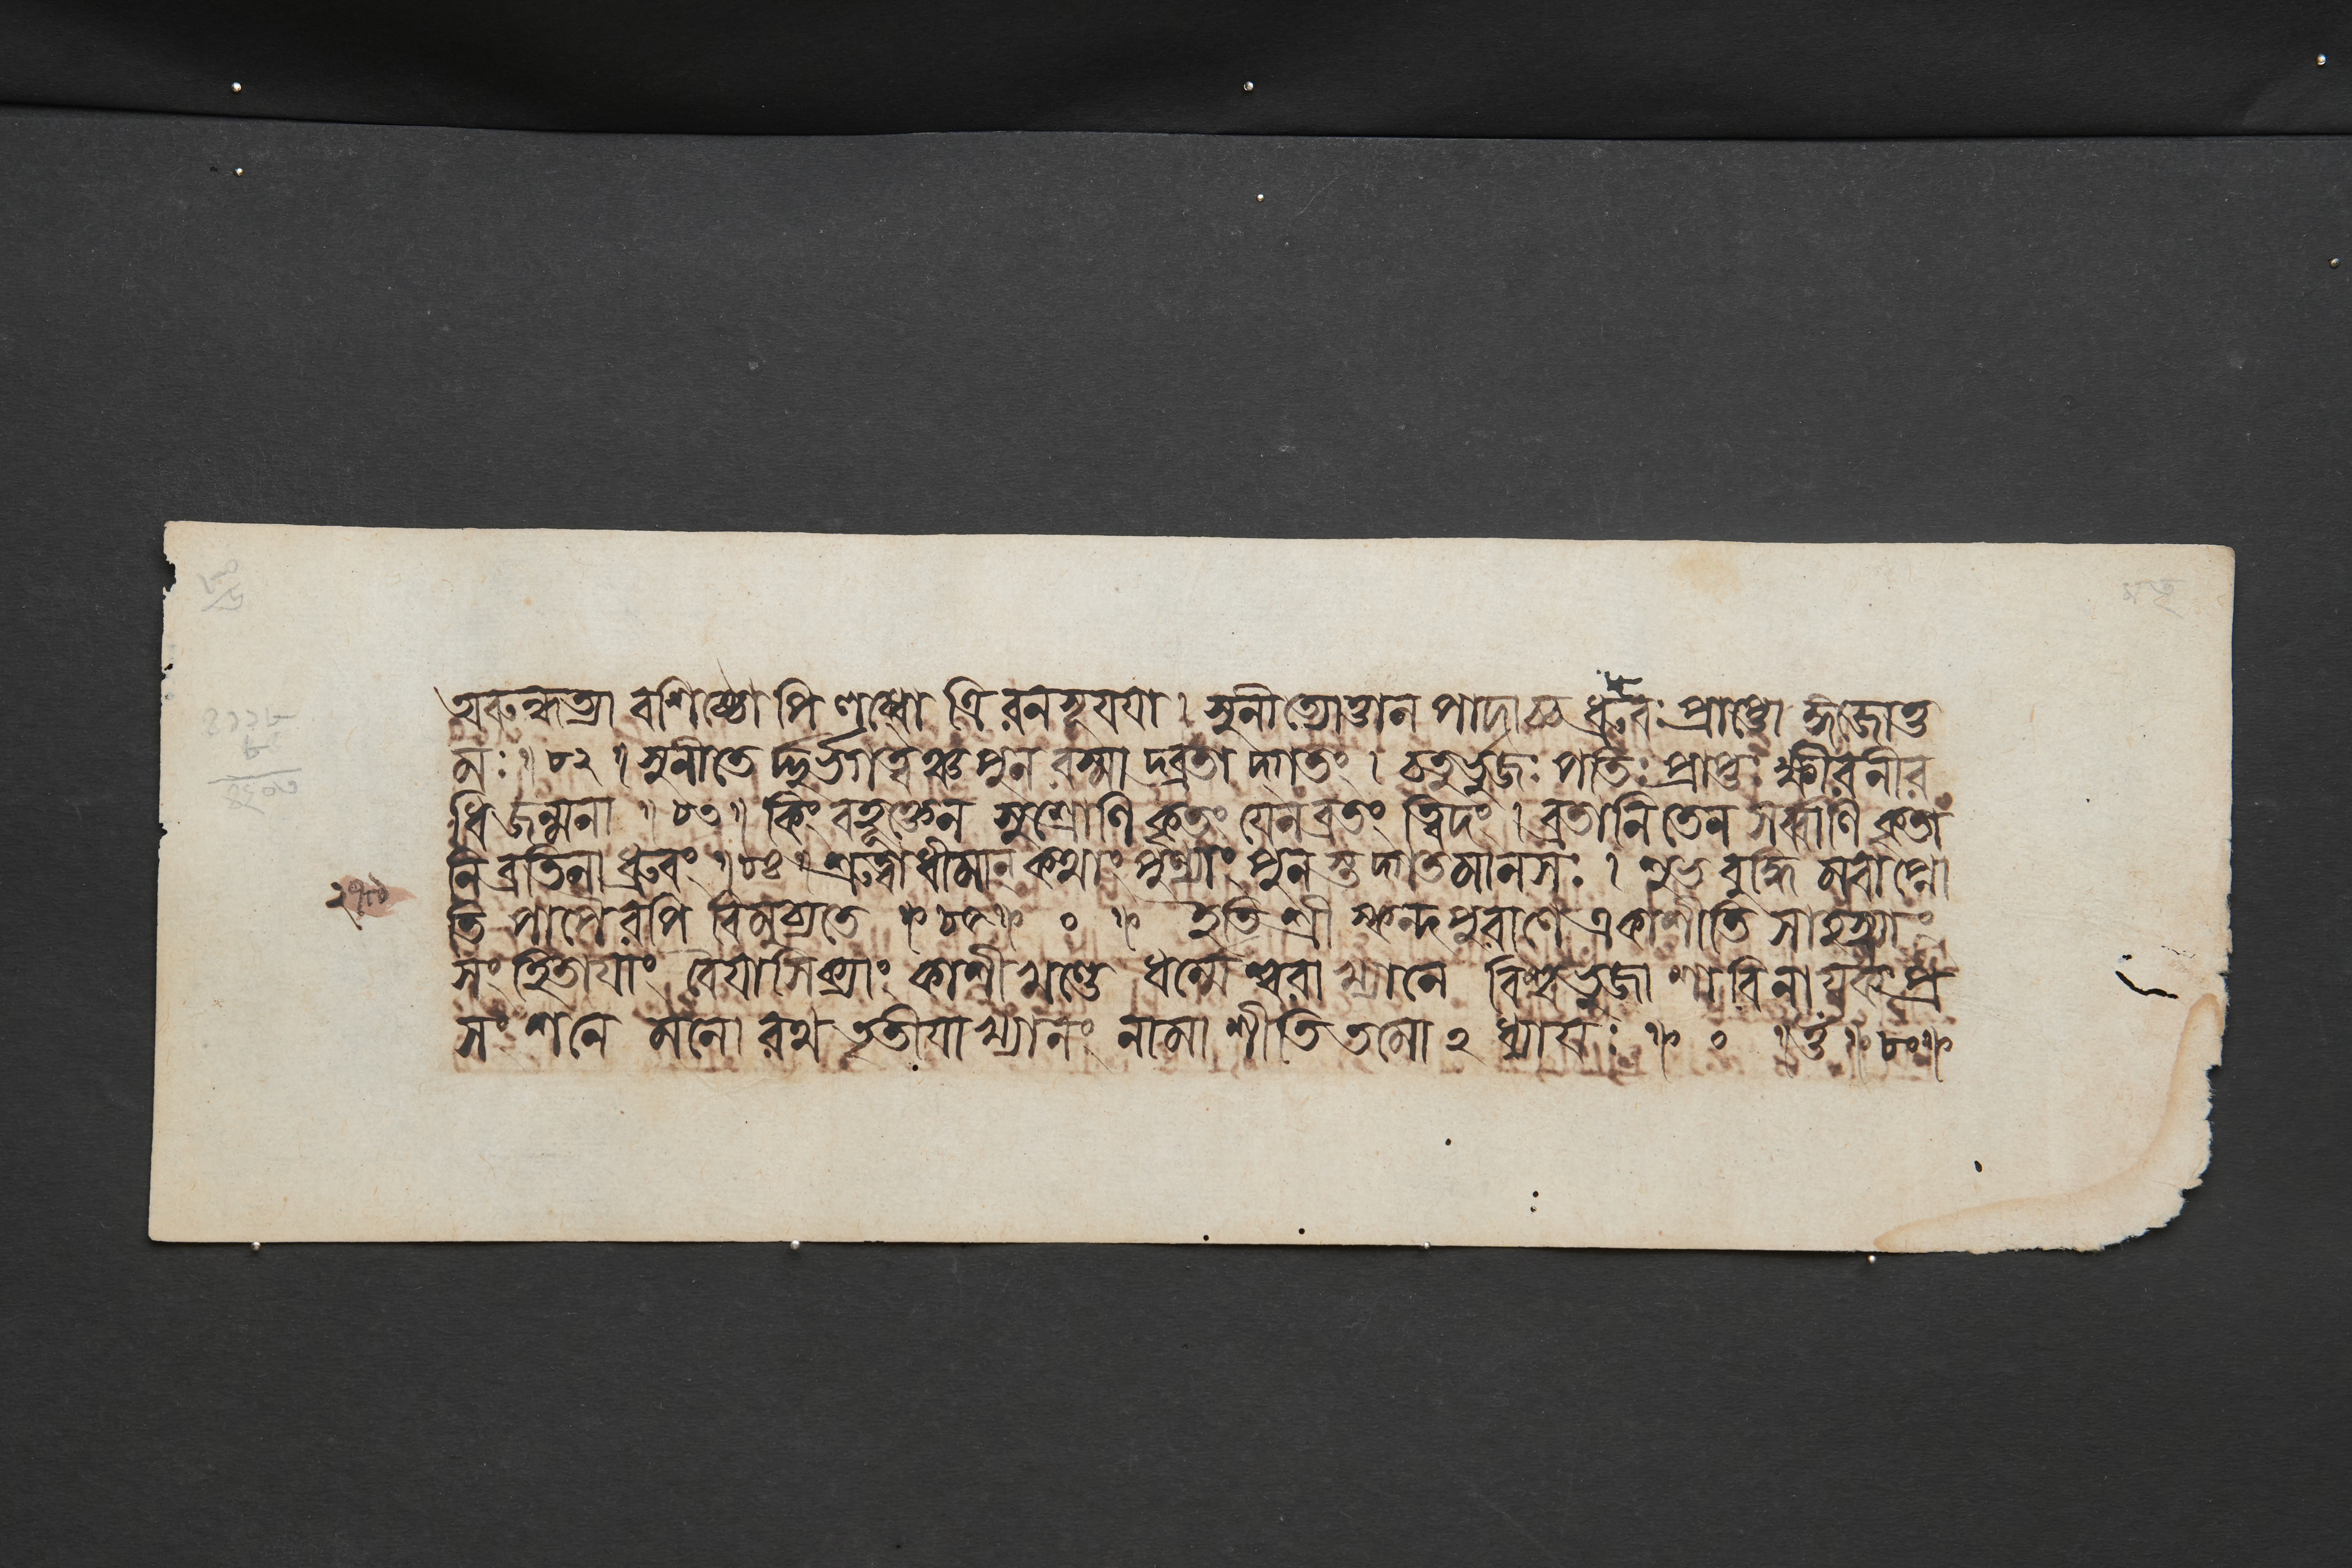 অরুন্ধত্যা বশিষ্ঠোপি লব্ধোত্রিরনসূযযা । সুনীত্যোত্তানপাদাচ্চ ধ্রুবঃ প্রাপ্তো ঙ্গজোত্ত
মঃ ॥ ৮২ ॥ সুনীতে র্দ্দুর্ভগত্বঞ্চ পুনরস্মাদ্ব্রতাদ্গতং । চতুর্ভুজঃ পতিঃ প্রাপ্তঃ ক্ষীরনীর
ধিজন্মনা ॥ ৮৩ ॥ কিং বহূক্তেন সুশ্রোণি কৃতং যেন ব্রতং ত্বিদং । ব্রতানি তেন সর্ব্বাণি কৃতা
নি ব্রতিনা ধ্রুবং ॥ ৮৪ ॥ শ্রুত্বা ধীমান্ কথাং পুণ্যাং পুনস্তদ্গতমানসঃ । শুভবুদ্ধিমবাপ্নো
তি পাপৈরপি বিমুচ্যতে ॥ ৮৫ ॥ ० ॥ ইতি শ্রীস্কন্দপুরাণে একাশীতিসাহস্র্যাং
সংহিতাযাং বৈযাসিক্যাং কাশীখণ্ডে ধর্ম্মেশ্বরাখ্যানে বিশ্বভুজাশাবিনাযকপ্র
সংশনে মনোরথতৃতীযাখ্যানং নামাশীতিতমো ২ ধ্যাযঃ ॥ ० ॥ ৮০ ॥